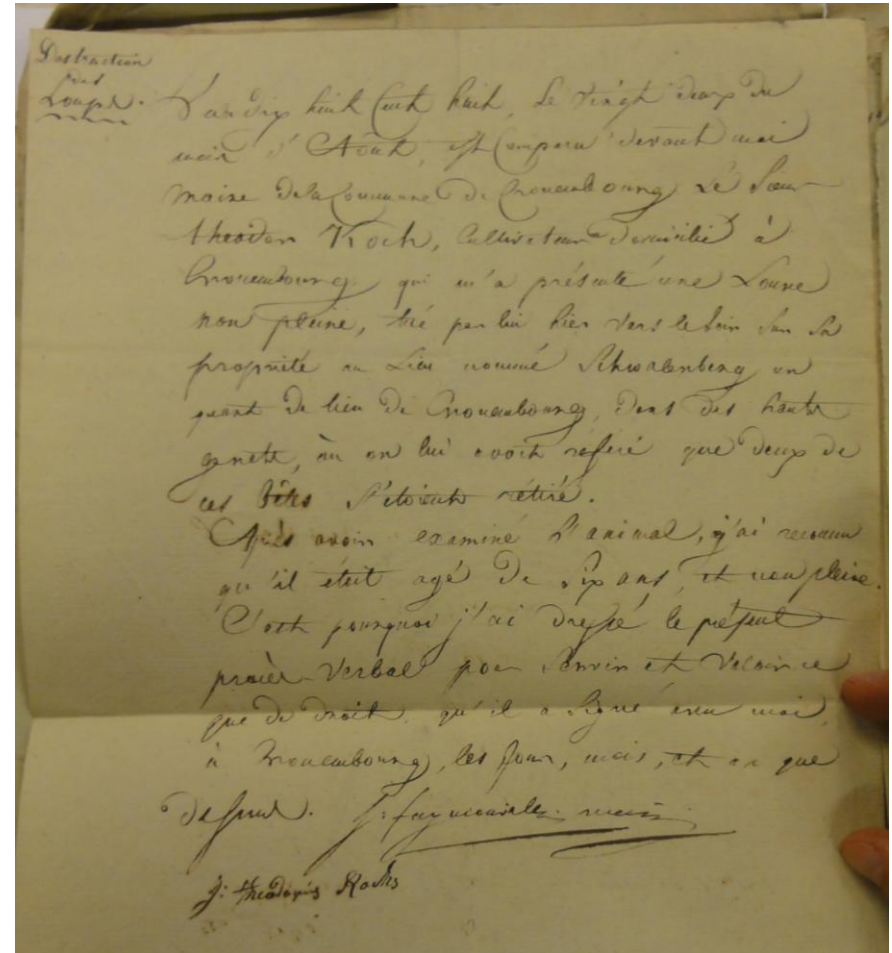 Destruction
des
Loups.
L'an dix huit Cent huit, le vingt deux du
mois d'Août, est Comparu devant moi
maire de la Commune de Cronenbourg le Sieur
theodor Koch, Cultivateur domicilié à
Cronenbourg qui m'a présenté une Louve
non pleine, tué par lui hier vers le soir sur sa
propriété au Lieu nommé Schwalenberg un
quart de lieu de Cronenbourg, dans des hauts
genets, où on lui avoit référé que deux de
ces bêtes s'etoient rétiré.
Après avoir examiné l'animal, j'ai reconnu
qu'il était agé de six ans, et non pleine.
C'est pourquoi j'ai dressé le présent
procès-Verbal pour servir et valoir ce
que de droit, qu'il a Signé avec moi,
à Cronenbourg, les jour, mois, et an que
dessus. maire
J: theodoris Kochs